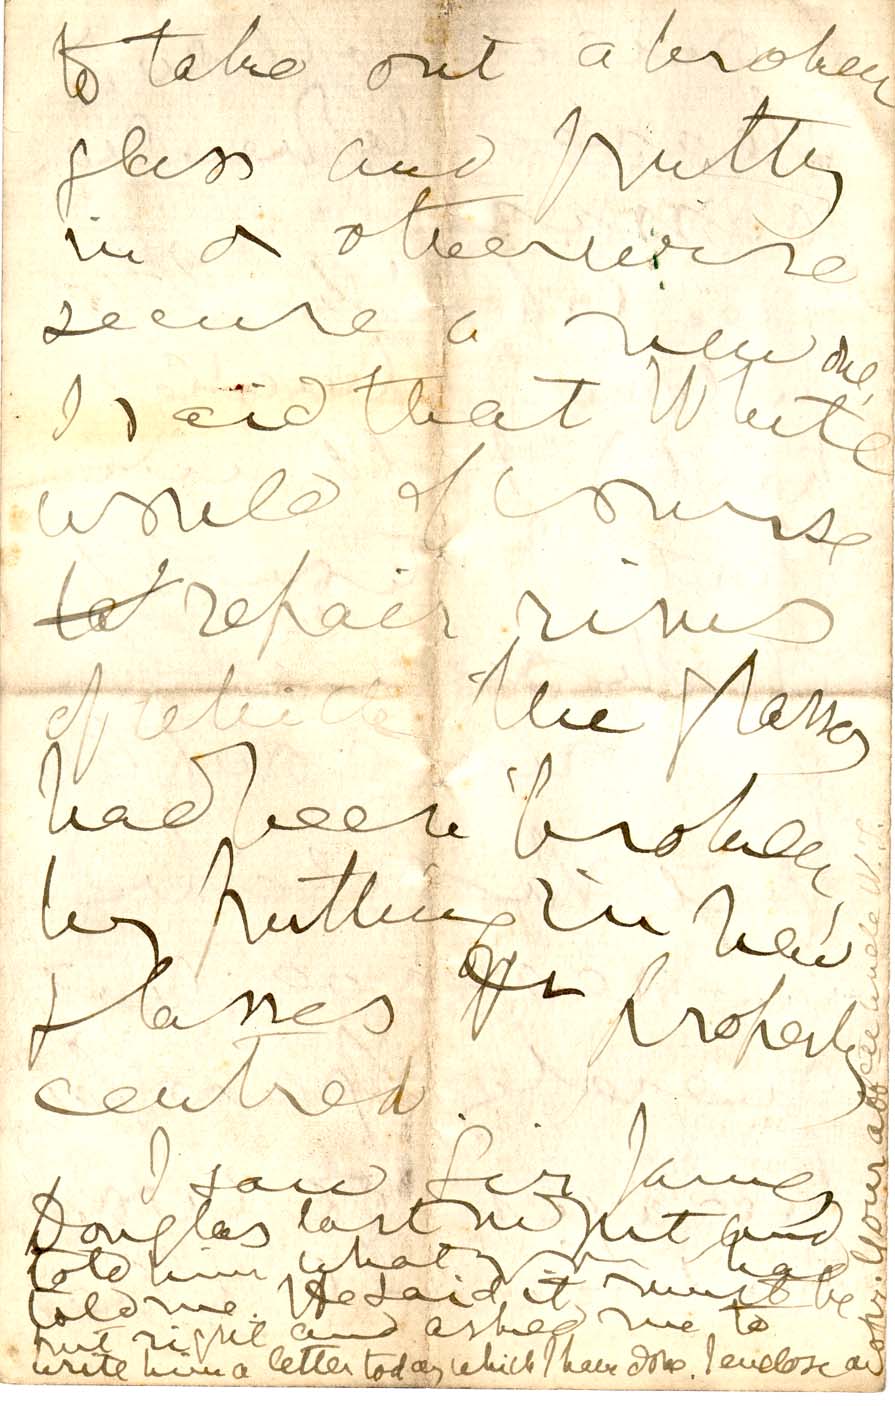 to take out a broken
glass and putty
in or otherwise
secure a new one,
I said that White
would of course
repair rims
of which the glasses
had been broken,
by putting in new
glasses properly
centred.
I saw Sir James
Douglas last night and
told him what you had
told me. He said it must be
put right and asked me to
write him a letter today which I have done. I enclose a
copy. Your affec uncle W.